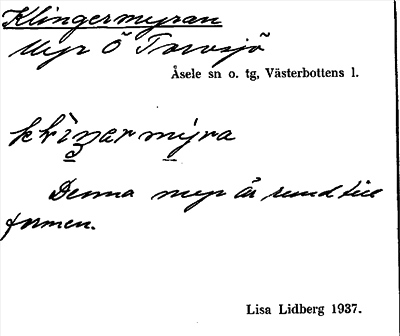 Klingermyran
Myr Ö Torvsjö
Åsele sn o. tg, Västerbottens l.
Denna myr är rund till
formen.
Lisa Lidberg 1937.